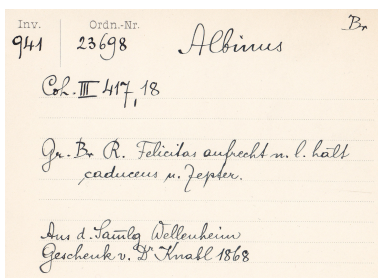 Inv. Ordn.-Nr. Br
941 23698 Albinus
Coh. III 417, 18
Gr. Br R. Felicitas aufrecht n. l. hält
caduceus u. Zepter.
Aus d. Samlg Wellenheim
Geschenk v. Dr Knabl 1868